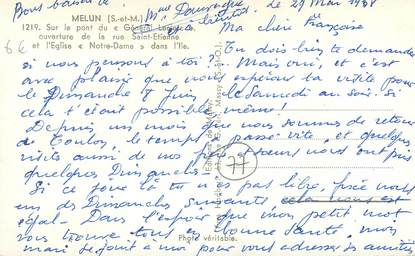 Bons baisers
le 29 Mai 1968
MELUN (S.-et-M.)
1219. Sur le pont du « Général
ouverture de la rue Saint-Etienne
et l'Eglise « Notre-Dame » dans l'Ile.
Ma chère Françoise
Tu dois bien te demander
si nous pensons à toi ? Mais oui, et c'est
avec plaisir que nous espérons ta visite pour
le Dimanche 9 Juin, le Samedi au soir. Si
cela t'était possible, même !
Depuis un mois que nous sommes de retour
de Toulon, le temps a passé vite, et quelques
visites aussi de nos nous ont pris
quelques Dimanches.
Si ce jour là tu n'es pas libre, fixe nous
un des Dimanches suivants, cela nous est
égal. Dans l'espoir que mon petit mot
vous trouve tous en bonne santé, mon
mari se joint à moi pour vous adresser ses amitiés
77
Photo véritable.